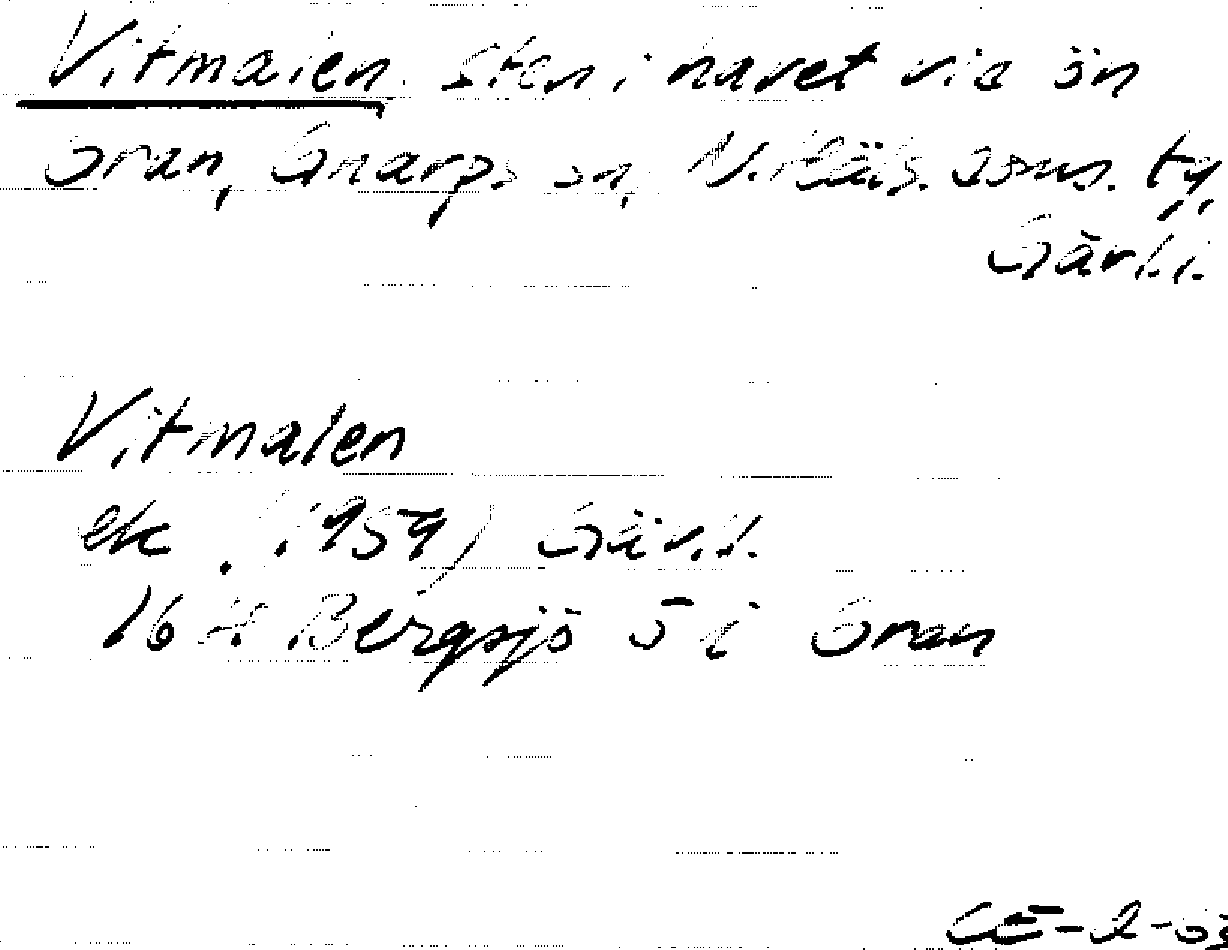 Vitmalen. Sten i havet vid ön
Gran, Gnarps sn, N. Häls. doms. tg,
Gävl.l.
Vitmalen
ek. (1959) Gäv.l.
16 H Bergsjö S i Gran